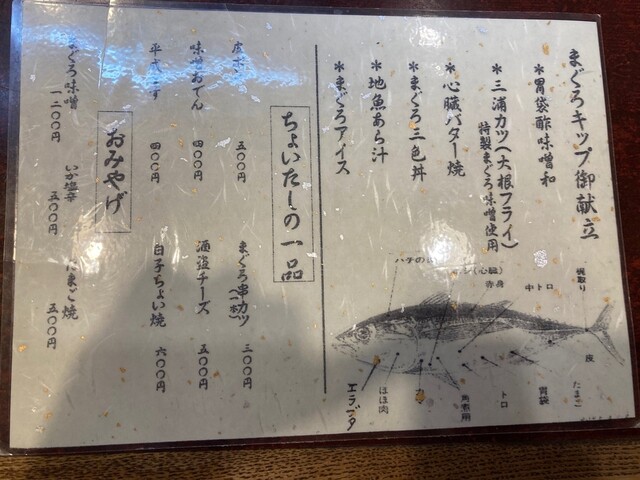 まぐろキップ御献立
*胃袋酢味噌和
*三浦カツ(大根フライ)
特製まぐろ味噌使用
*心臓バター焼
*まぐろ三色丼
*地魚あら汁
*まぐろアイス
ハチの
(心臓)
赤身
中トロ
尾取り
エラブタ
ほほ肉
角煮用
トロ
胃袋
たまご
皮
ちょいたしの一品
五〇〇円
まぐろ串カツ(一本)
三〇〇円
味噌おでん
四〇〇円
酒盗チーズ
五〇〇円
四〇〇円
白子ちょい焼
六〇〇円
おみやげ
まぐろ味噌
一二〇〇円
いか塩辛
五〇〇円
たまご焼
五〇〇円